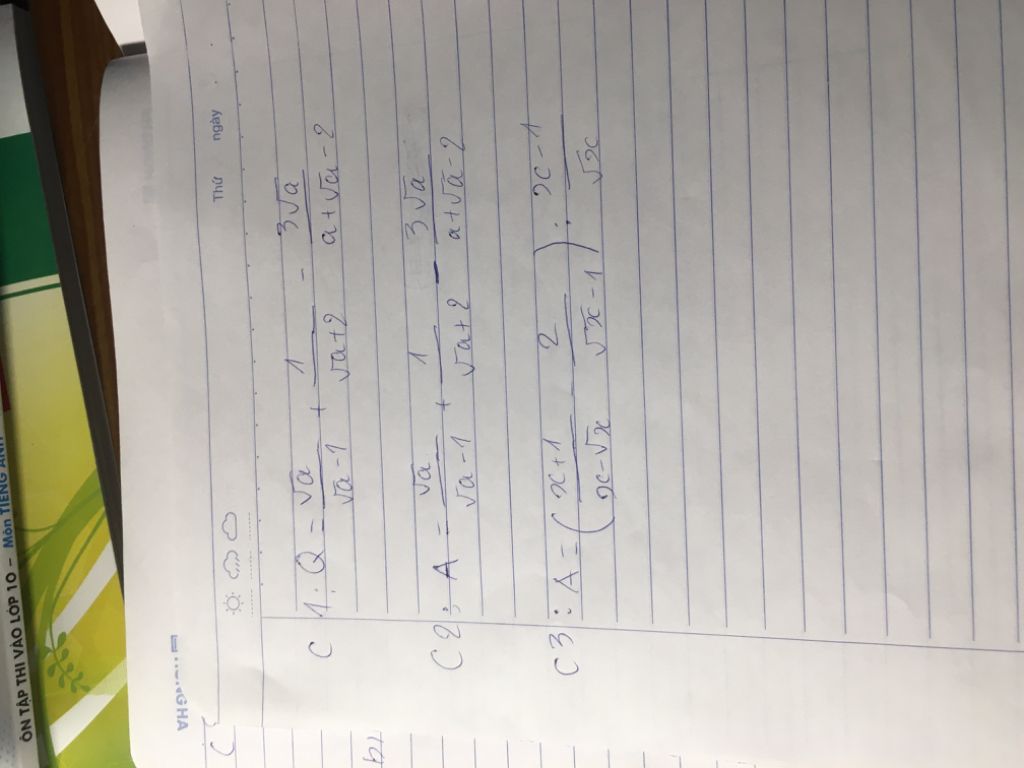 ÔN TẬP THI VÀO LỚP 10 – Môn TIẾNG ANH
NGHA
Thứ ngày
C 1: Q = √a/(√a-1) + 1/(√a+2) - 3√a/(a+√a-2)
C2: A = √a/(√a-1) + 1/(√a+2) - 3√a/(a+√a-2)
C3: A = ((x+1)/(x-√x) - 2/(√x-1)) : (x-1)/√x
C
b,